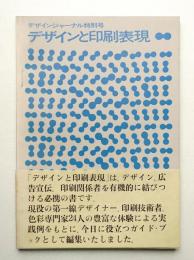 デザインジャーナル特別号
デザインと印刷表現
「デザインと印刷表現」は、デザイン、広
告宣伝、印刷関係者を有機的に結びつ
ける必携の書です。
現役の第一線デザイナー、印刷技術者、
色彩専門家24人の豊富な体験による実
践例をもとに、今日に役立つガイド・ブ
ックとして編集いたしました。